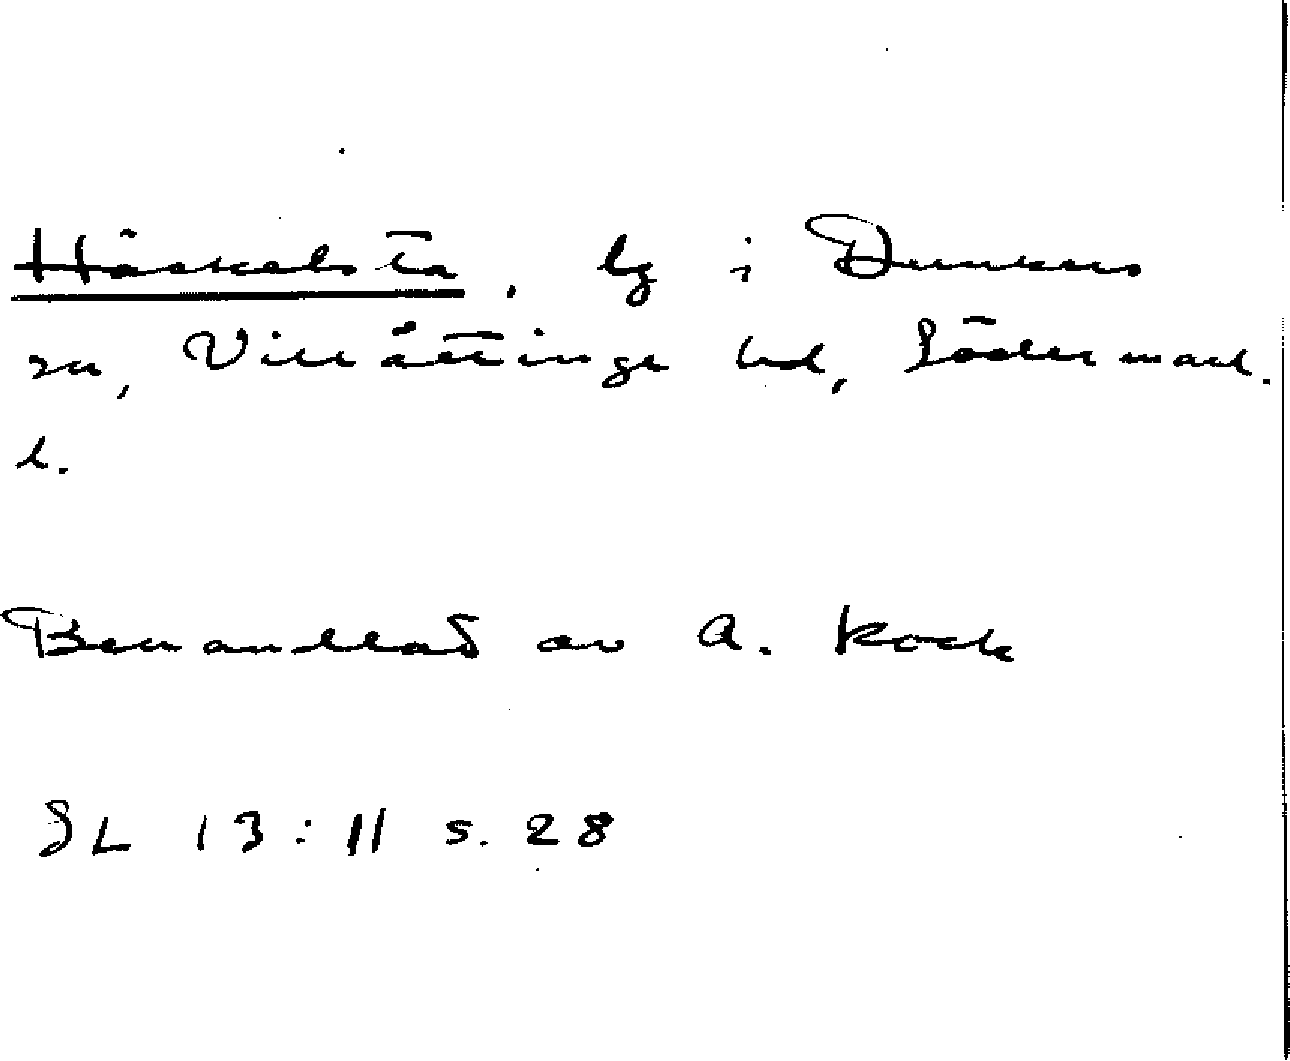 Håskelsta, by i Dunkers
sn, Villåttinge hd, Södermanl.
l.
Behandlad av A. Kock
SL 13:11 s. 28